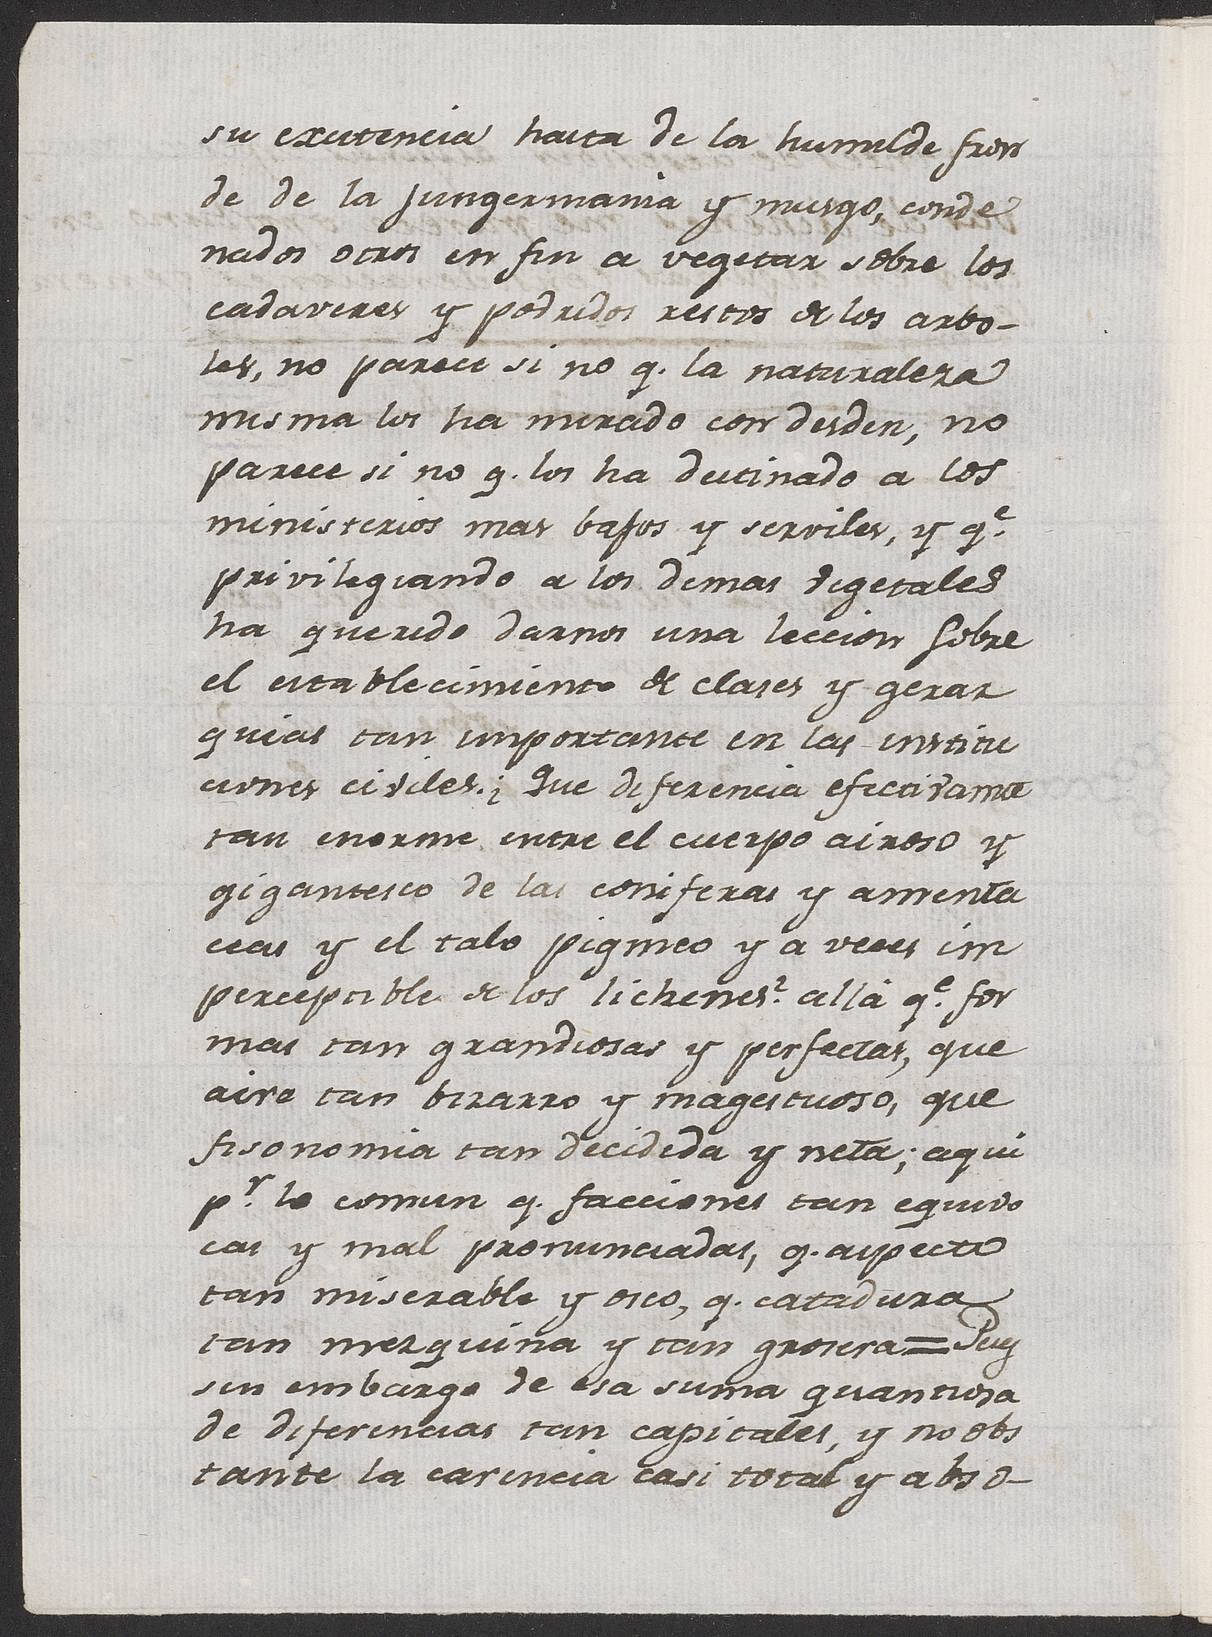 su existencia hasta de la humilde fron
de de la Jungermania y musgo, conde
nados otros en fin a vegetar sobre los
cadaveres y podridos restos de los arbo-
les, no parece si no q. la naturaleza
misma los ha mirado con desden, no
parece si no q. los ha destinado a los
ministerios mas bajos y serviles, y q.e
privilegiando a los demas vegetales
ha querido darnos una leccion sobre
el establecimiento de clases y gerar
quias tan importante en las institu
ciones civiles.¡ Que diferencia efectivamte
tan enorme entre el cuerpo airoso y
gigantesco de las coniferas y amenta
ceas y el talo pigmeo y a veces im
perceptible de los lichenes? allá q.e for
mas tan grandiosas y perfectas, que
aire tan bizarro y magestuoso, que
fisonomia tan decidida y neta; aqui
p.r lo comun q. facciones tan equivo
cas y mal pronunciadas, q. aspecto
tan miserable y osco, q. catadura
tan mezquina y tan grosera = Pues
sin embargo de esa suma quantiosa
de diferencias tan capitales, y no obs
tante la carencia casi total y abso-